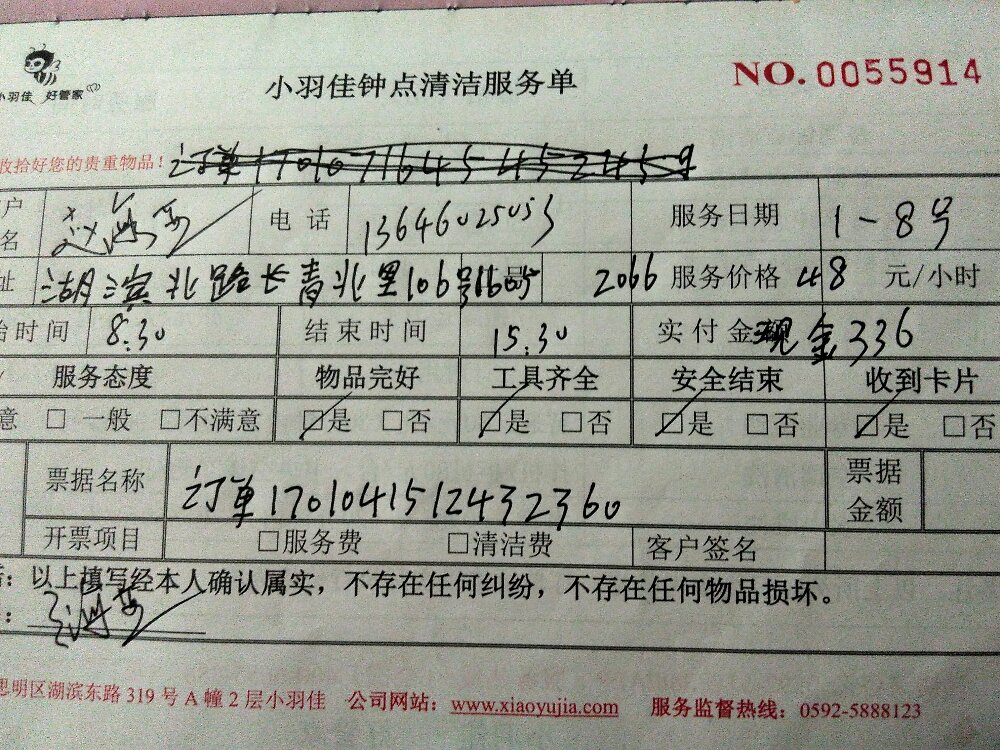 小羽佳 好管家
小羽佳钟点清洁服务单
NO. 0055914
收拾好您的贵重物品!
订单
户名 电话 服务日期 1-8号
址 湖滨北路长青北里106号 2066 服务价格 48 元/小时
始时间 8:30 结束时间 15:30 实付金 现金336
服务态度 物品完好 工具齐全 安全结束 收到卡片
意 □ 一般 □不满意 □是 □否 □是 □否 □是 □否 □是 □否
票据名称 订单1701041512432360 票据金额
开票项目 □服务费 □清洁费 客户签名
:以上填写经本人确认属实,不存在任何纠纷,不存在任何物品损坏。
思明区湖滨东路319号A幢2层小羽佳 公司网站:www.xiaoyujia.com 服务监督热线:0592-5888123